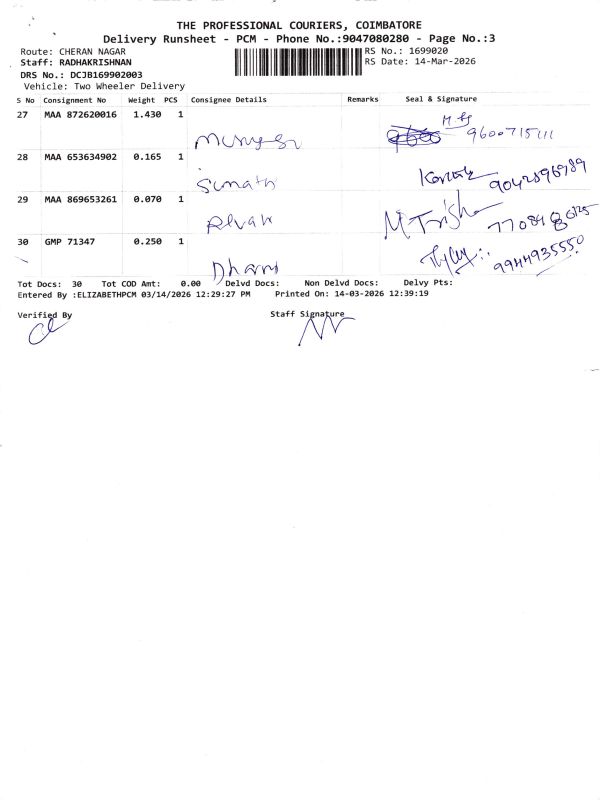 THE PROFESSIONAL COURIERS, COIMBATORE
Delivery Runsheet - PCM - Phone No.:9047080280 - Page No.:3
Route: CHERAN NAGAR
RS No.: 1699020
Staff: RADHAKRISHNAN
RS Date: 14-Mar-2026
DRS No.: DCJB169902003
Vehicle: Two Wheeler Delivery
S No Consignment No Weight PCS Consignee Details Remarks Seal & Signature
27 MAA 872620016 1.430 1
9600715111
28 MAA 653634902 0.165 1
29 MAA 869653261 0.070 1
M Trisha
30 GMP 71347 0.250 1
Dharu
9944935550
Tot Docs: 30 Tot COD Amt: 0.00 Delvd Docs: Non Delvd Docs: Delvy Pts:
Entered By :ELIZABETHPCM 03/14/2026 12:29:27 PM Printed On: 14-03-2026 12:39:19
Verified By Staff Signature